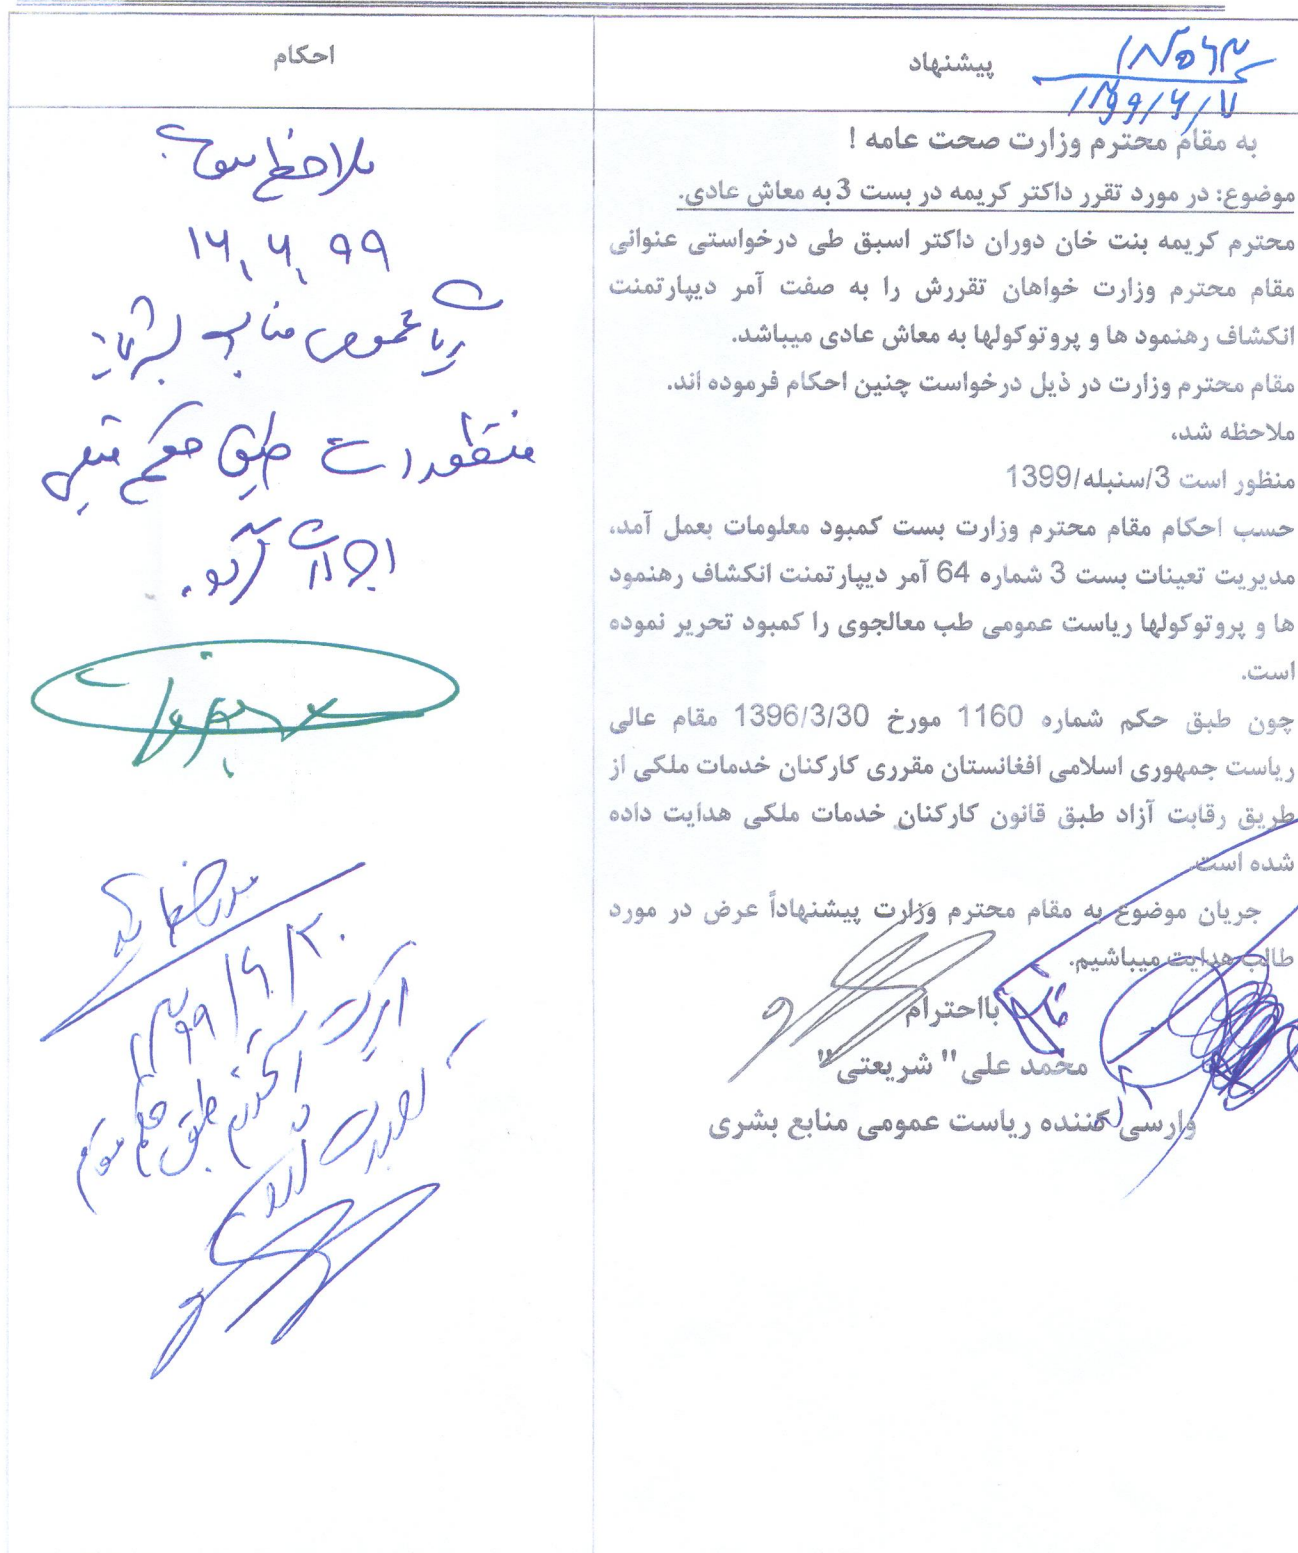 پیشنهاد
به مقام محترم وزارت صحت عامه !
موضوع: در مورد تقرر داکتر کریمه در بست 3 به معاش عادی.
محترم کریمه بنت خان دوران داکتر اسبق طی درخواستی عنوانی
مقام محترم وزارت خواهان تقررش را به صفت آمر دیپارتمنت
انکشاف رهنمود ها و پروتوکولها به معاش عادی میباشد.
مقام محترم وزارت در ذیل درخواست چنین احکام فرموده اند.
ملاحظه شد،
منظور است 3/سنبله/1399
حسب احکام مقام محترم وزارت بست کمبود معلومات بعمل آمد.
مدیریت تعینات بست 3 شماره 64 آمر دیپارتمنت انکشاف رهنمود
ها و پروتوکولها ریاست عمومی طب معالجوی را کمبود تحریر نموده
است.
چون طبق حکم شماره 1160 مورخ 1396/3/30 مقام عالی
ریاست جمهوری اسلامی افغانستان مقرری کارکنان خدمات ملکی از
طریق رقابت آزاد طبق قانون کارکنان خدمات ملکی هدایت داده
شده است
جریان موضوع به مقام محترم وزارت پیشنهاداً عرض در مورد
طالب هدایت میباشیم.
بااحترام
محمد علی" شریعتی"
وارسی کننده ریاست عمومی منابع بشری
احکام
ملاحظه شد
۹۹
منظور است طبق حکم قبلی
۱۳۹۹/۶/۲۰
طبق حکم مقام